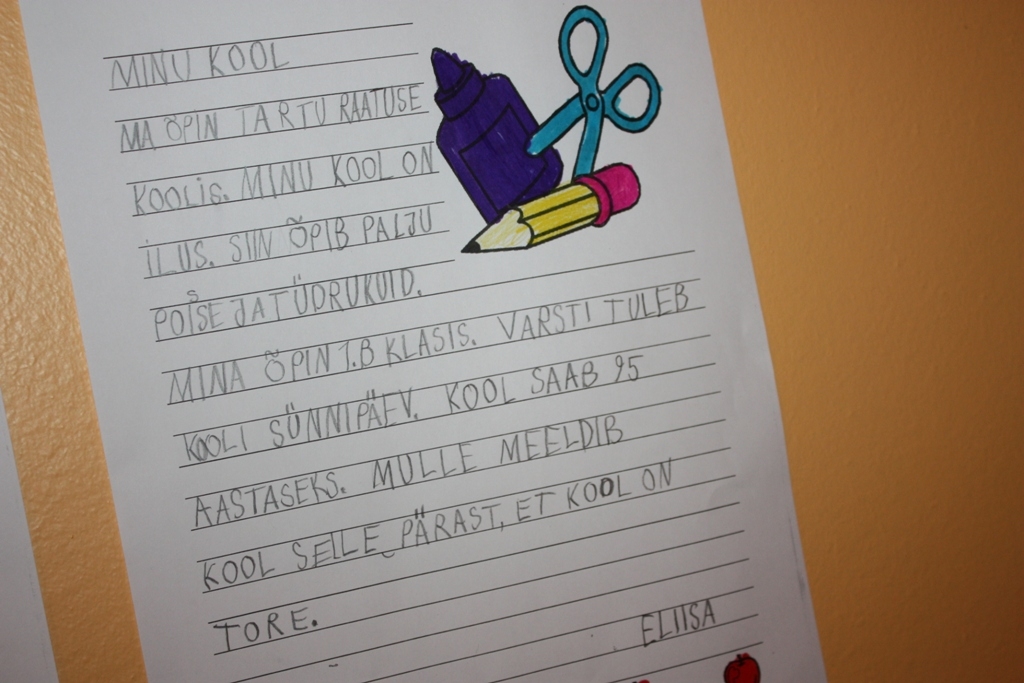 MINU KOOL
MA ÕPIN TARTU RAATUSE
KOOLIS. MINU KOOL ON
ILUS. SIIN ÕPIB PALJU
POISSE JA TÜDRUKUID.
MINA ÕPIN 1.B KLASIS. VARSTI TULEB
KOOLI SÜNNIPÄEV. KOOL SAAB 95
AASTASEKS. MULLE MEELDIB
KOOL SELLE PÄRAST, ET KOOL ON
TORE.
ELIISA